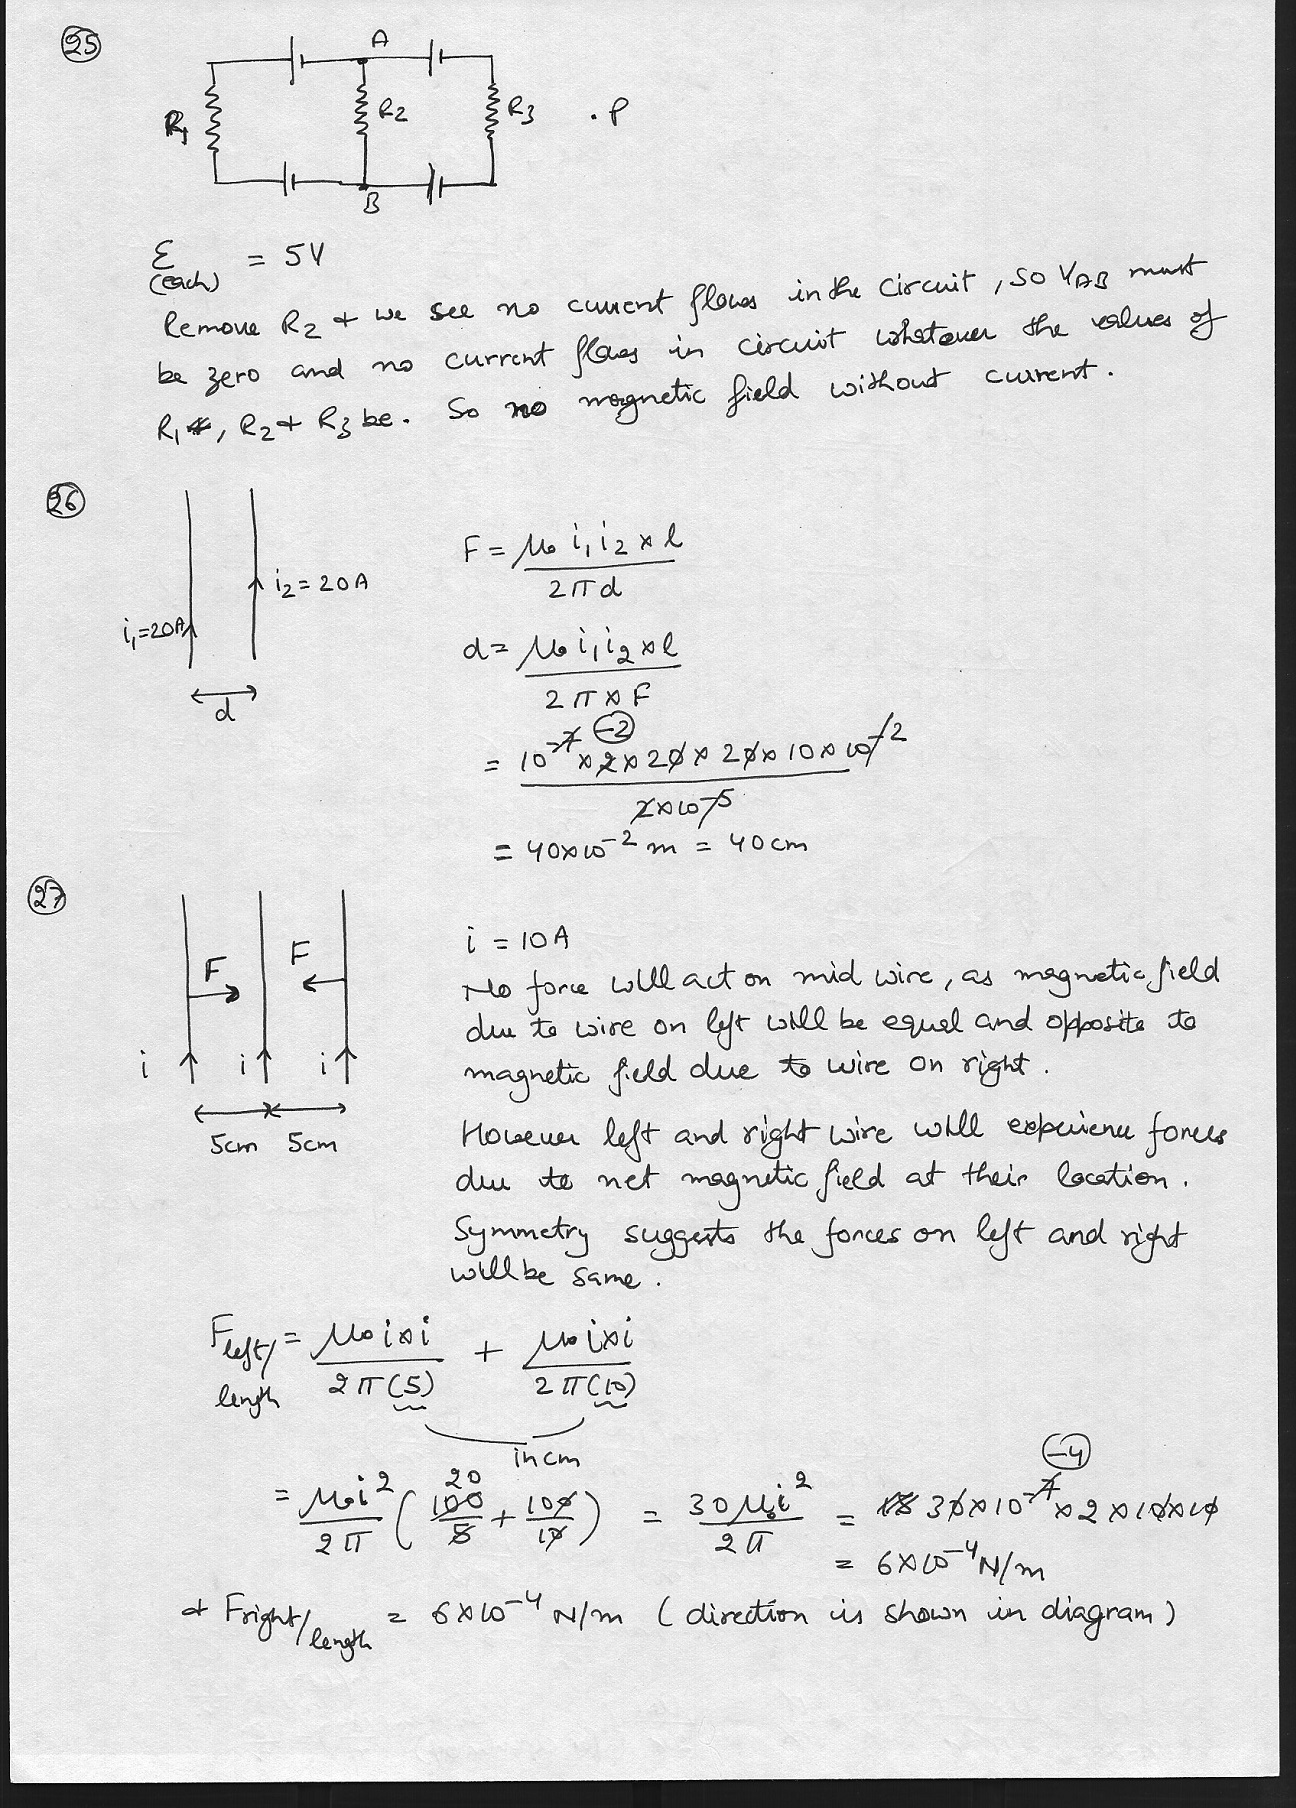 25
A
R1
R2
R3
. P
B
ε = 5V
(each)
Remove R2 & we see no current flows in the circuit, so VAB must
be zero and no current flows in circuit whatever the values of
R1, R2 & R3 be. So no magnetic field without current.
26
i1=20A
i2=20A
d
F = μ0 i1 i2 × l
2πd
d = μ0 i1 i2 × l
2π × F
-2
= 10-7 × 2 × 20 × 20 × 10 × 10-2
2×10-5
= 40×10-2 m = 40cm
27
F
F
i
i
i
5cm 5cm
i = 10A
No force will act on mid wire, as magnetic field
due to wire on left will be equal and opposite to
magnetic field due to wire on right.
However left and right wire will experience forces
due to net magnetic field at their location.
Symmetry suggests the forces on left and right
will be same.
Fleft/length = μ0 i×i + μ0 i×i
2π(5) 2π(10)
in cm
20
-4
= μ0i2 (100 + 100) = 30μ0i2 = 30×10-7×2×10×10
2π 5 10 2π
= 6×10-4 N/m
& Fright/length = 6×10-4 N/m (direction is shown in diagram)